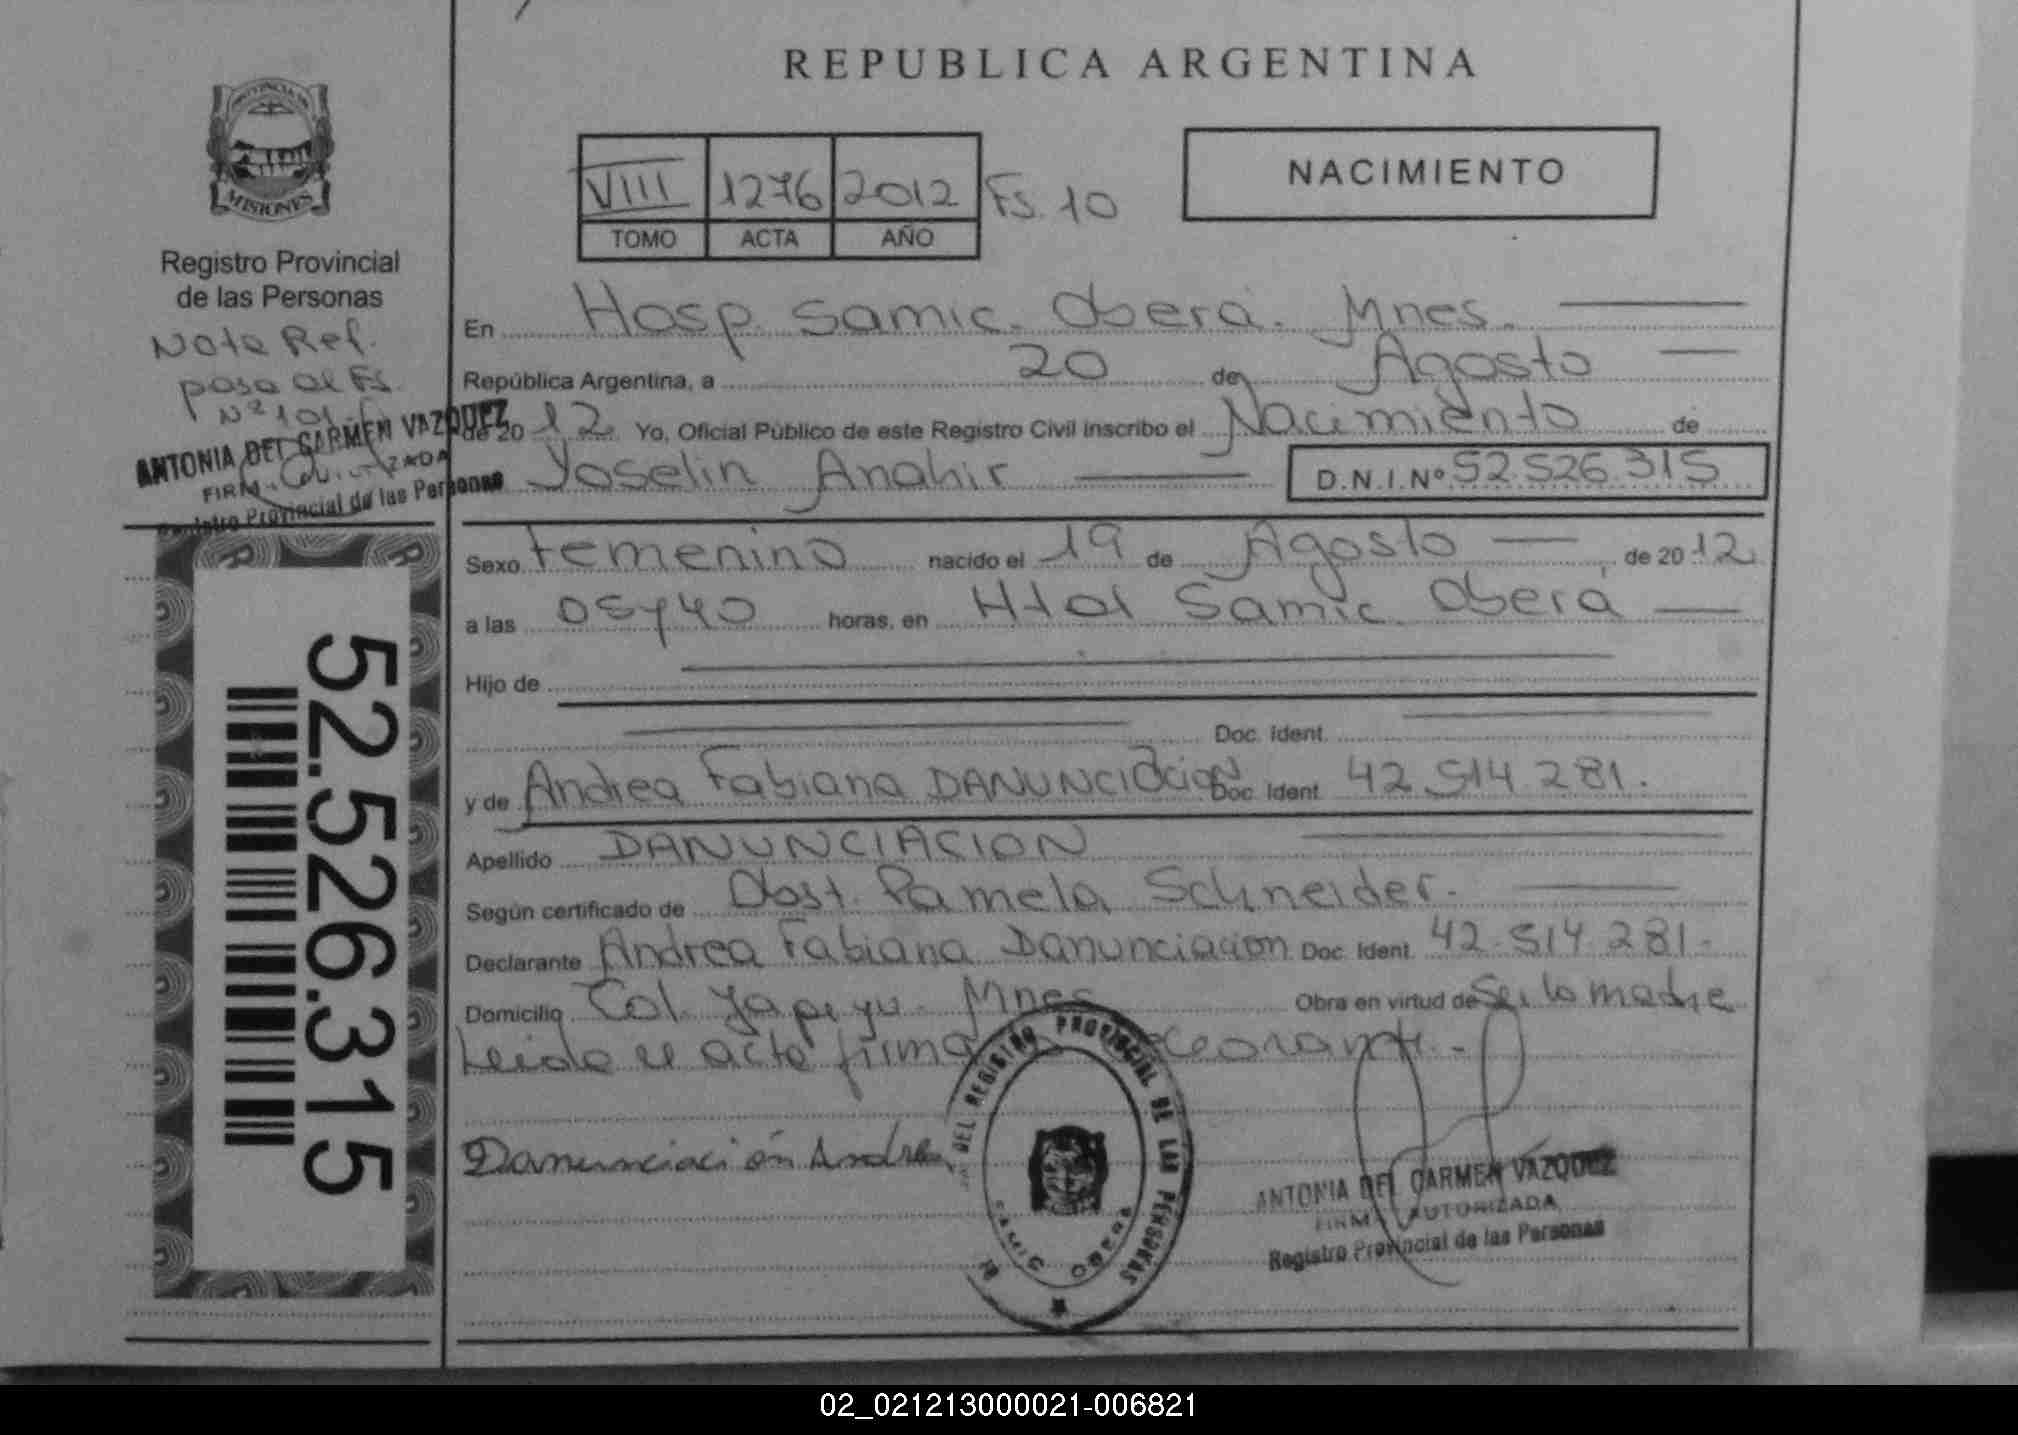 REPUBLICA ARGENTINA
PROVINCIA DE
MISIONES
Registro Provincial
de las Personas
Nota Ref.
pasa al Fs.
Nº 101
ANTONIA DEL CARMEN VAZQUEZ
Registro Provincial de las Personas
VIII 1276 2012 Fs. 10
TOMO ACTA AÑO
NACIMIENTO
En Hosp. Samic. Oberá. Mnes.
República Argentina, a 20 de Agosto
de 20 12 Yo, Oficial Público de este Registro Civil inscribo el Nacimiento de
Yoselin Anahir D.N.I.Nº 52.526.315
Sexo Femenino nacido el 19 de Agosto de 20 12
a las 05y40 horas, en Htal Samic. Oberá
Hijo de
Doc. Ident.
y de Andrea Fabiana DANUNCIACION Doc. Ident. 42.514.281.
Apellido DANUNCIACION
Según certificado de Obst. Pamela Schneider.
Declarante Andrea Fabiana Danunciacion Doc. Ident. 42.514.281.
Domicilio Col. Yapeyu. Mnes Obra en virtud de Ser la madre
Leida el acta firma
Danunciación Andrea
DEL REGISTRO PROVINCIAL DE LAS PERSONAS
SAMIC OBERA
ANTONIA DEL CARMEN VAZQUEZ
FIRMA AUTORIZADA
Registro Provincial de las Personas
52.526.315
02_021213000021-006821